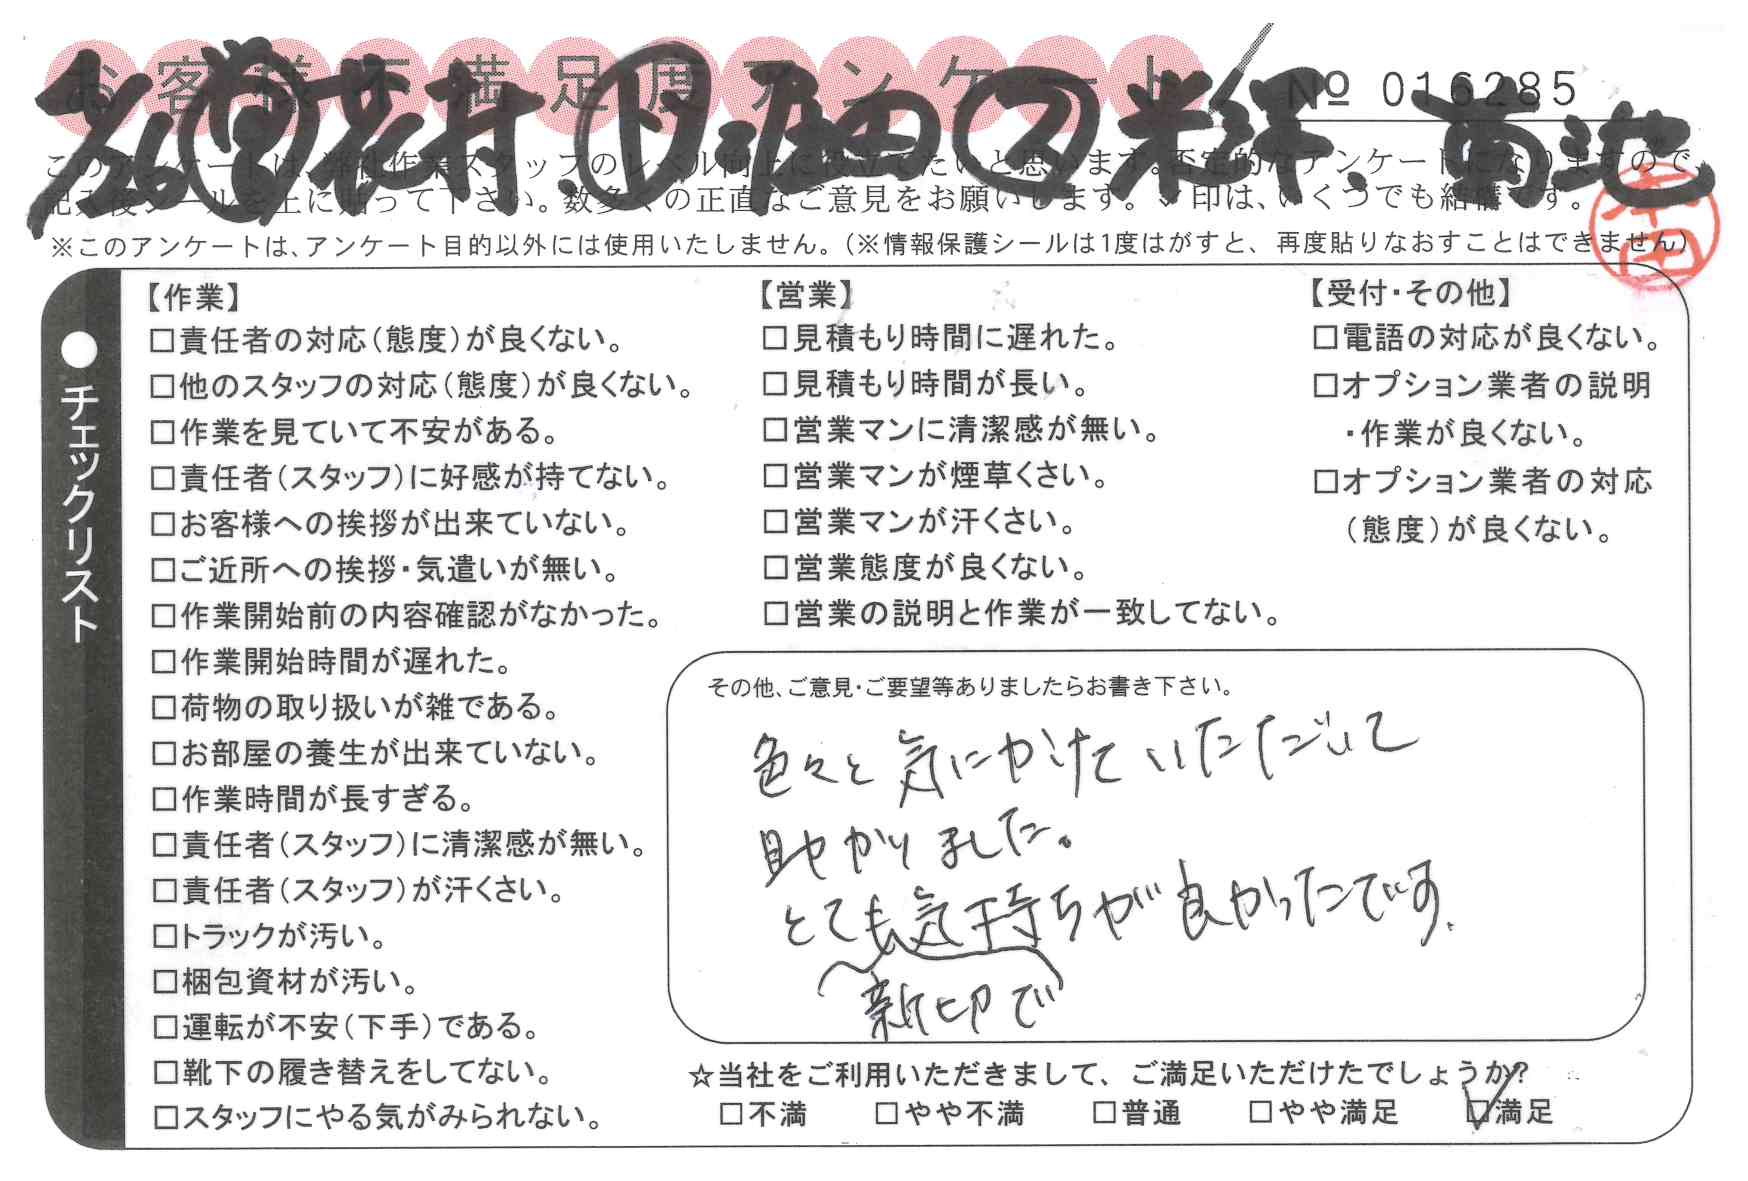 お客様不満足度アンケート
№ 016285
このアンケートは、弊社作業スタッフのレベル向上に役立てたいと思います。否定的なアンケートになりますので、
記入後シールを上に貼って下さい。数多くの正直なご意見をお願いします。✓印は、いくつでも結構です。
※このアンケートは、アンケート目的以外には使用いたしません。(※情報保護シールは1度はがすと、再度貼りなおすことはできません)
本田
●チェックリスト
【作業】
□責任者の対応(態度)が良くない。
□他のスタッフの対応(態度)が良くない。
□作業を見ていて不安がある。
□責任者(スタッフ)に好感が持てない。
□お客様への挨拶が出来ていない。
□ご近所への挨拶・気遣いが無い。
□作業開始前の内容確認がなかった。
□作業開始時間が遅れた。
□荷物の取り扱いが雑である。
□お部屋の養生が出来ていない。
□作業時間が長すぎる。
□責任者(スタッフ)に清潔感が無い。
□責任者(スタッフ)が汗くさい。
□トラックが汚い。
□梱包資材が汚い。
□運転が不安(下手)である。
□靴下の履き替えをしてない。
□スタッフにやる気がみられない。
【営業】
□見積もり時間に遅れた。
□見積もり時間が長い。
□営業マンに清潔感が無い。
□営業マンが煙草くさい。
□営業マンが汗くさい。
□営業態度が良くない。
□営業の説明と作業が一致してない。
【受付・その他】
□電話の対応が良くない。
□オプション業者の説明
・作業が良くない。
□オプション業者の対応
(態度)が良くない。
その他、ご意見・ご要望等ありましたらお書き下さい。
色々と気にかけていただいて
助かりました。
とても気持ちが良かったです。
親切で
☆当社をご利用いただきまして、ご満足いただけたでしょうか?
□不満 □やや不満 □普通 □やや満足 □満足